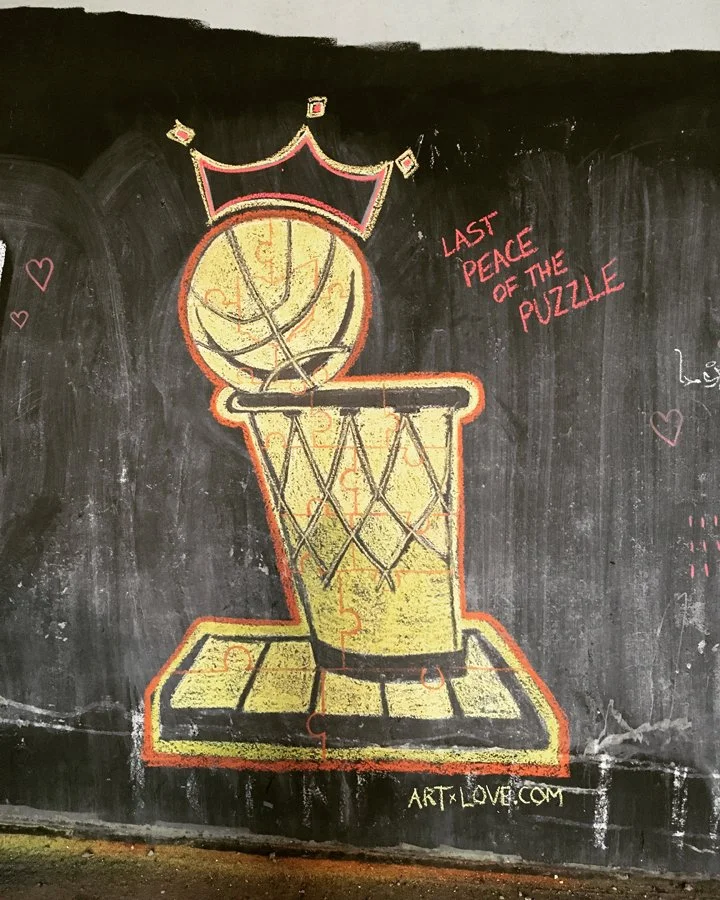 LAST
PEACE
OF THE
PUZZLE
ART×LOVE.COM